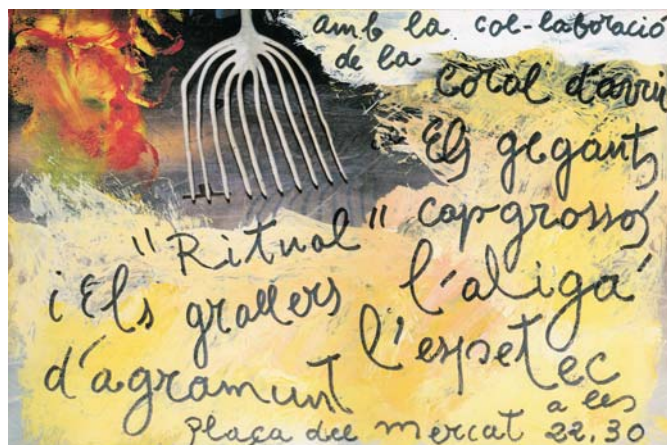 amb la col·laboració
de la
coral d'arru
Els gegants
"Ritual" capgrossos
i Els grallers l'aliga
d'agramunt l'espetec
plaça del mercat a les
22.30